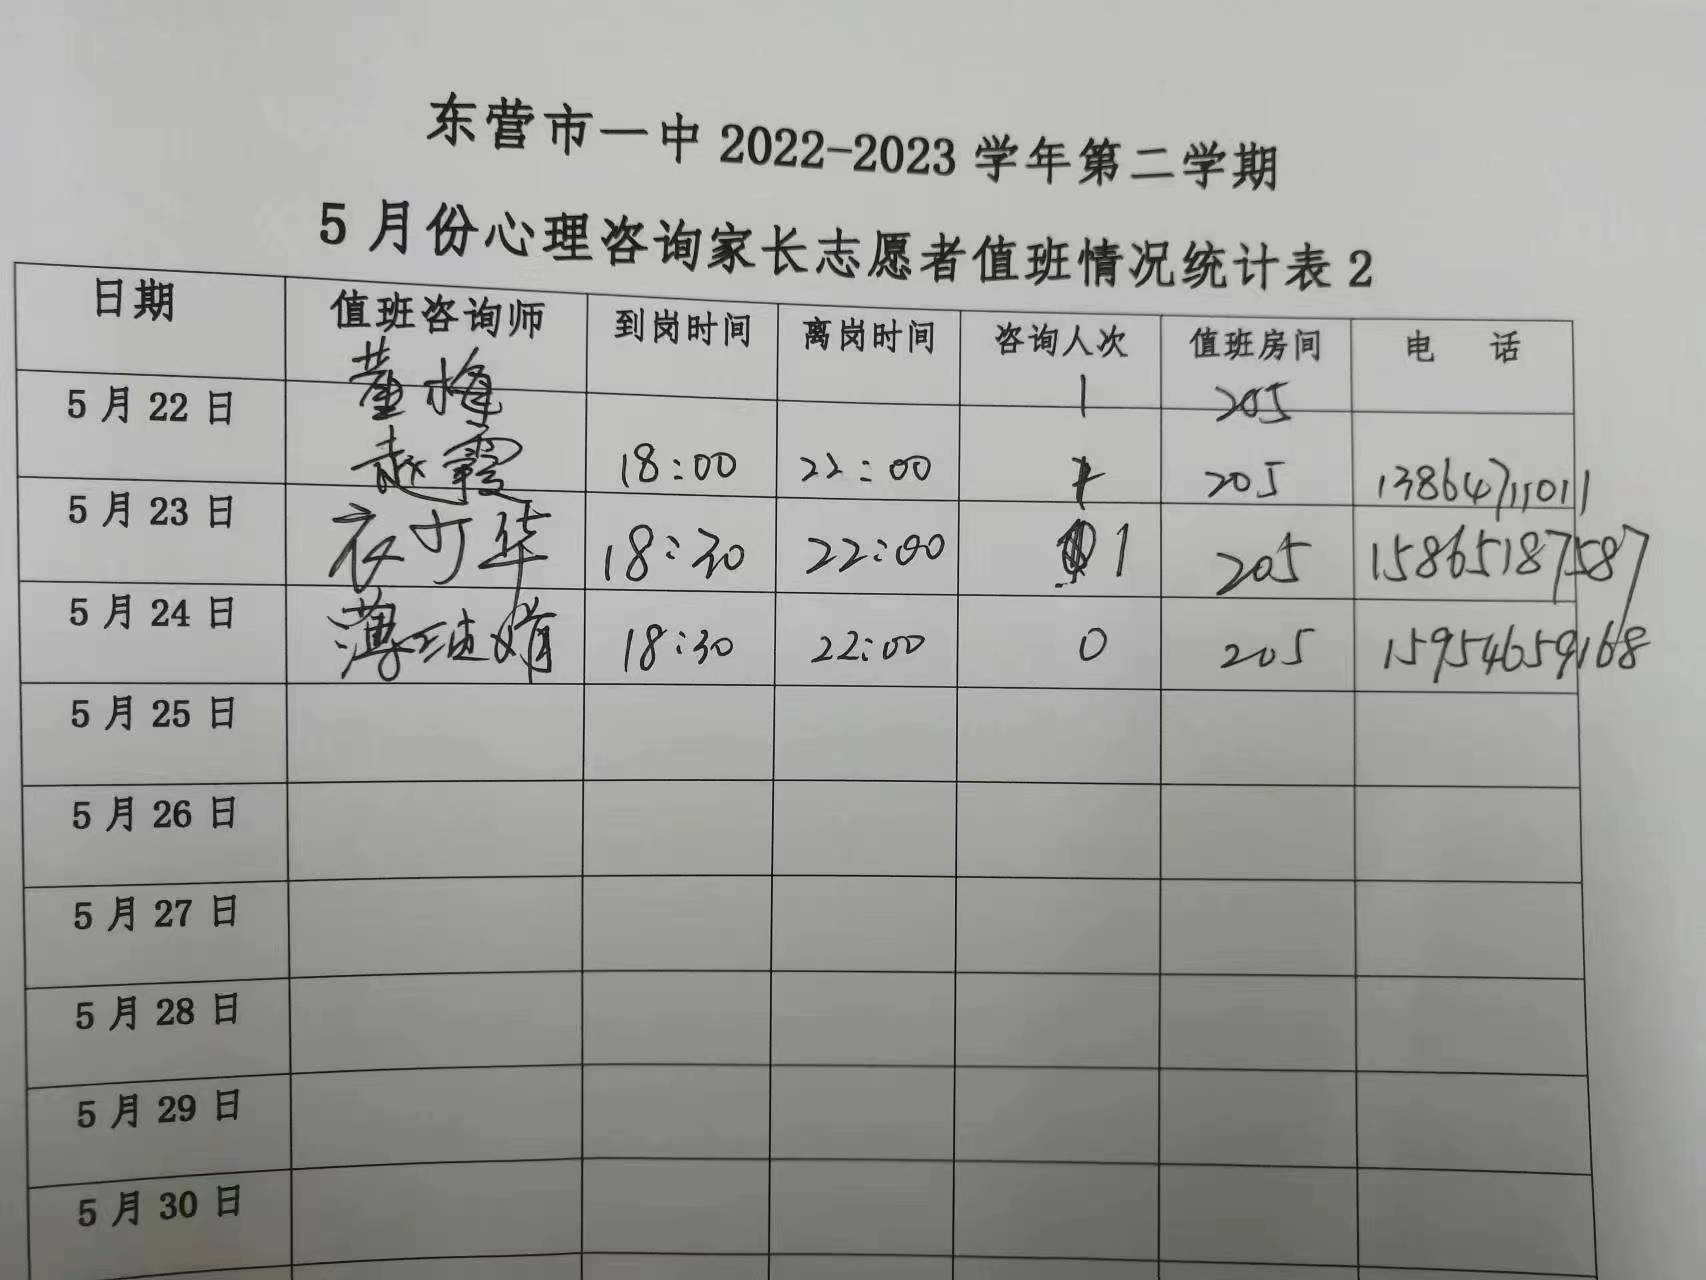 东营市一中2022-2023学年第二学期
5月份心理咨询家长志愿者值班情况统计表2
日期 值班咨询师 到岗时间 离岗时间 咨询人次 值班房间 电 话
董梅 1 205
5月22日 赵霞 18:00 22:00 1 205 13864711011
5月23日 衣丁华 18:30 22:00 1 205 15865187587
5月24日 薄 娟 18:30 22:00 0 205 15954659168
5月25日
5月26日
5月27日
5月28日
5月29日
5月30日